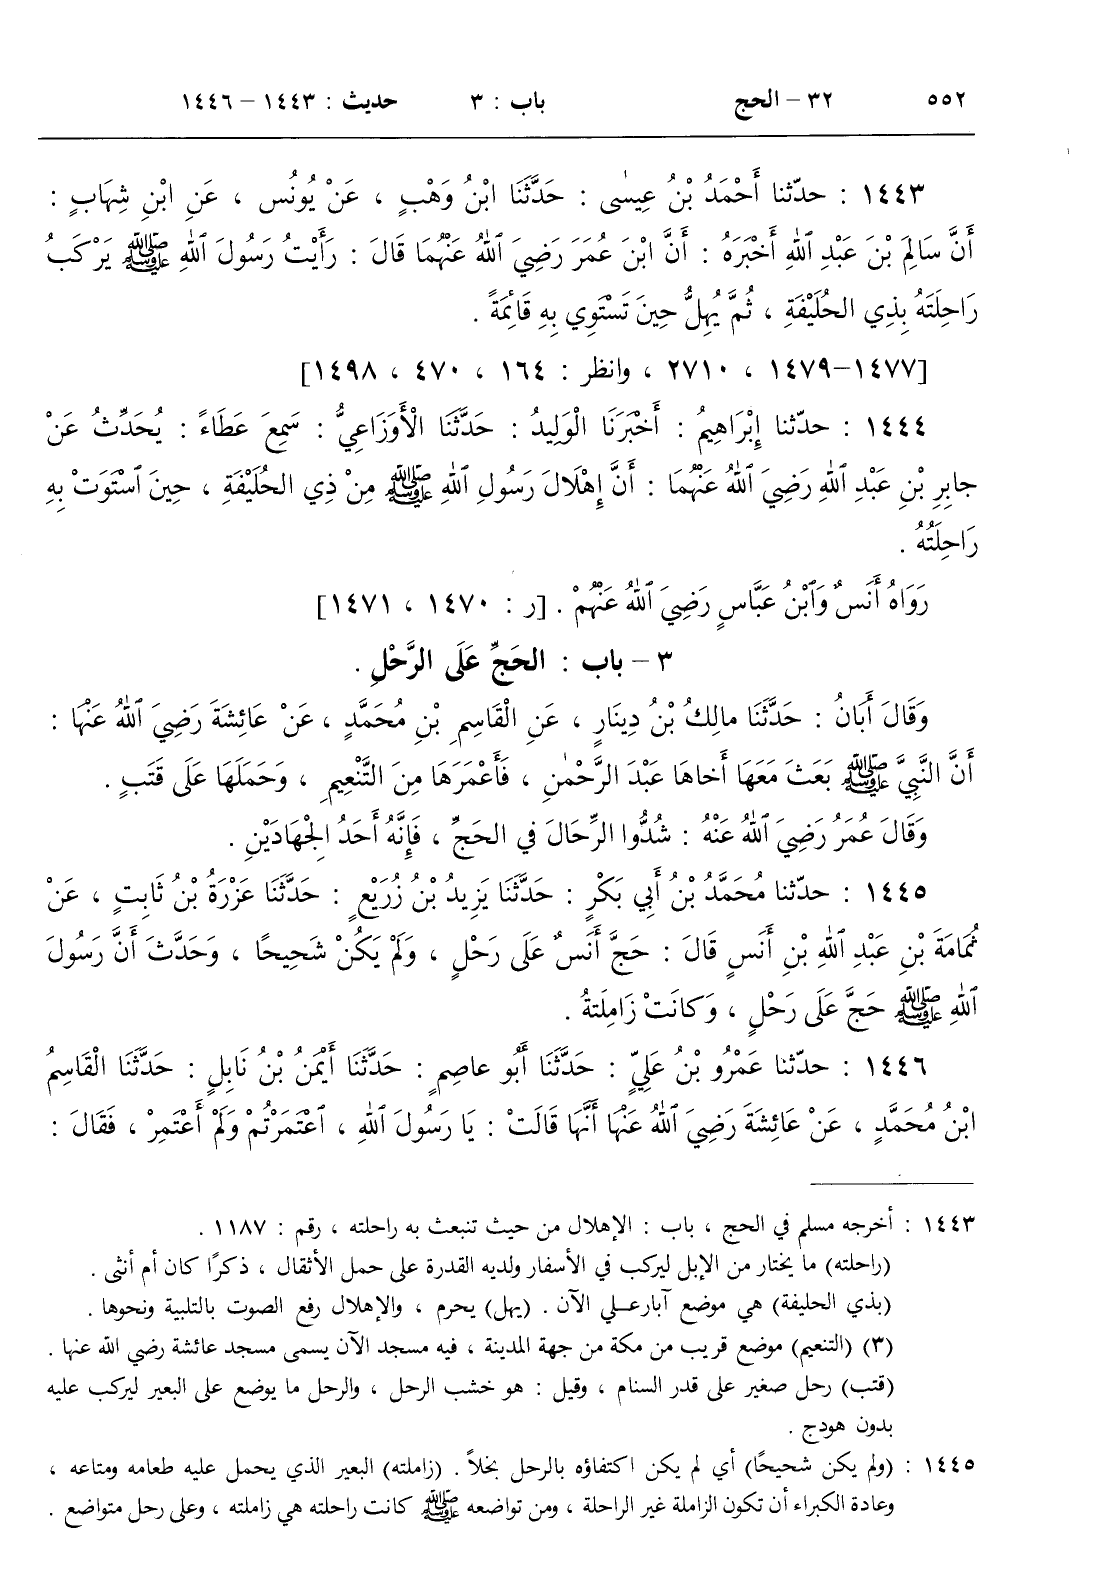 ٥٥٢ ٣٢ – الحج باب : ٣ حديث : ١٤٤٣ – ١٤٤٦
١٤٤٣ : حدّثنا أَحْمَدُ بْنُ عِيسٰى : حَدَّثَنَا ابْنُ وَهْبٍ ، عَنْ يُونُس ، عَنِ ابْنِ شِهَابٍ :
أَنَّ سَالِمَ بْنَ عَبْدِ اللهِ أَخْبَرَهُ : أَنَّ ابْنَ عُمَرَ رَضِيَ اللهُ عَنْهُمَا قَالَ : رَأَيْتُ رَسُولَ اللهِ ﷺ يَرْكَبُ
رَاحِلَتَهُ بِذِي الحُلَيْفَةِ ، ثُمَّ يُهِلُّ حِينَ تَسْتَوِي بِهِ قَائِمَةً .
[١٤٧٧–١٤٧٩ ، ٢٧١٠ ، وانظر : ١٦٤ ، ٤٧٠ ، ١٤٩٨]
١٤٤٤ : حدّثنا إِبْرَاهِيمُ : أَخْبَرَنَا الْوَلِيدُ : حَدَّثَنَا الْأَوْزَاعِيُّ : سَمِعَ عَطَاءً : يُحَدِّثُ عَنْ
جابِرِ بْنِ عَبْدِ اللهِ رَضِيَ اللهُ عَنْهُمَا : أَنَّ إِهْلَالَ رَسُولِ اللهِ ﷺ مِنْ ذِي الحُلَيْفَةِ ، حِينَ ٱسْتَوَتْ بِهِ
رَاحِلَتُهُ .
رَوَاهُ أَنَسٌ وَٱبْنُ عَبَّاسٍ رَضِيَ اللهُ عَنْهُمْ . [ر : ١٤٧٠ ، ١٤٧١]
٣ – باب : الحَجِّ عَلَى الرَّحْلِ .
وَقَالَ أَبَانُ : حَدَّثَنَا مالِكُ بْنُ دِينَارٍ ، عَنِ الْقَاسِمِ بْنِ مُحَمَّدٍ ، عَنْ عَائِشَةَ رَضِيَ اللهُ عَنْهَا :
أَنَّ النَّبِيَّ ﷺ بَعَثَ مَعَهَا أَخاهَا عَبْدَ الرَّحْمٰنِ ، فَأَعْمَرَهَا مِنَ التَّنْعِيمِ ، وَحَمَلَهَا عَلَى قَتَبٍ .
وَقَالَ عُمَرُ رَضِيَ اللهُ عَنْهُ : شُدُّوا الرِّحَالَ في الحَجِّ ، فَإِنَّهُ أَحَدُ الْجِهَادَيْنِ .
١٤٤٥ : حدّثنا مُحَمَّدُ بْنُ أَبِي بَكْرٍ : حَدَّثَنَا يَزِيدُ بْنُ زُرَيْعٍ : حَدَّثَنَا عَزْرَةُ بْنُ ثَابِتٍ ، عَنْ
ثُمَامَةَ بْنِ عَبْدِ اللهِ بْنِ أَنَسٍ قَالَ : حَجَّ أَنَسٌ عَلَى رَحْلٍ ، وَلَمْ يَكُنْ شَحِيحًا ، وَحَدَّثَ أَنَّ رَسُولَ
ٱللهِ ﷺ حَجَّ عَلَى رَحْلٍ ، وَكانَتْ زَامِلَتهُ .
١٤٤٦ : حدّثنا عَمْرُو بْنُ عَلِيٍّ : حَدَّثَنَا أَبُو عاصِمٍ : حَدَّثَنَا أَيْمَنُ بْنُ نَابِلٍ : حَدَّثَنَا الْقَاسِمُ
ابْنُ مُحَمَّدٍ ، عَنْ عَائِشَةَ رَضِيَ اللهُ عَنْهَا أَنَّهَا قَالَتْ : يَا رَسُولَ اللهِ ، ٱعْتَمَرْتُمْ وَلَمْ أَعْتَمِرْ ، فَقَالَ :
١٤٤٣ : أخرجه مسلم في الحج ، باب : الإهلال من حيث تنبعث به راحلته ، رقم : ١١٨٧ .
(راحلته) ما يختار من الإبل ليركب في الأسفار ولديه القدرة على حمل الأثقال ، ذكرًا كان أم أنثى .
(بذي الحليفة) هي موضع آبارعـلي الآن . (يهل) يحرم ، والإهلال رفع الصوت بالتلبية ونحوها .
(٣) (التنعيم) موضع قريب من مكة من جهة المدينة ، فيه مسجد الآن يسمى مسجد عائشة رضي الله عنها .
(قتب) رحل صغير على قدر السنام ، وقيل : هو خشب الرحل ، والرحل ما يوضع على البعير ليركب عليه
بدون هودج .
١٤٤٥ : (ولم يكن شحيحًا) أي لم يكن اكتفاؤه بالرحل بخلاً . (زاملته) البعير الذي يحمل عليه طعامه ومتاعه ،
وعادة الكبراء أن تكون الزاملة غير الراحلة ، ومن تواضعه ﷺ كانت راحلته هي زاملته ، وعلى رحل متواضع .